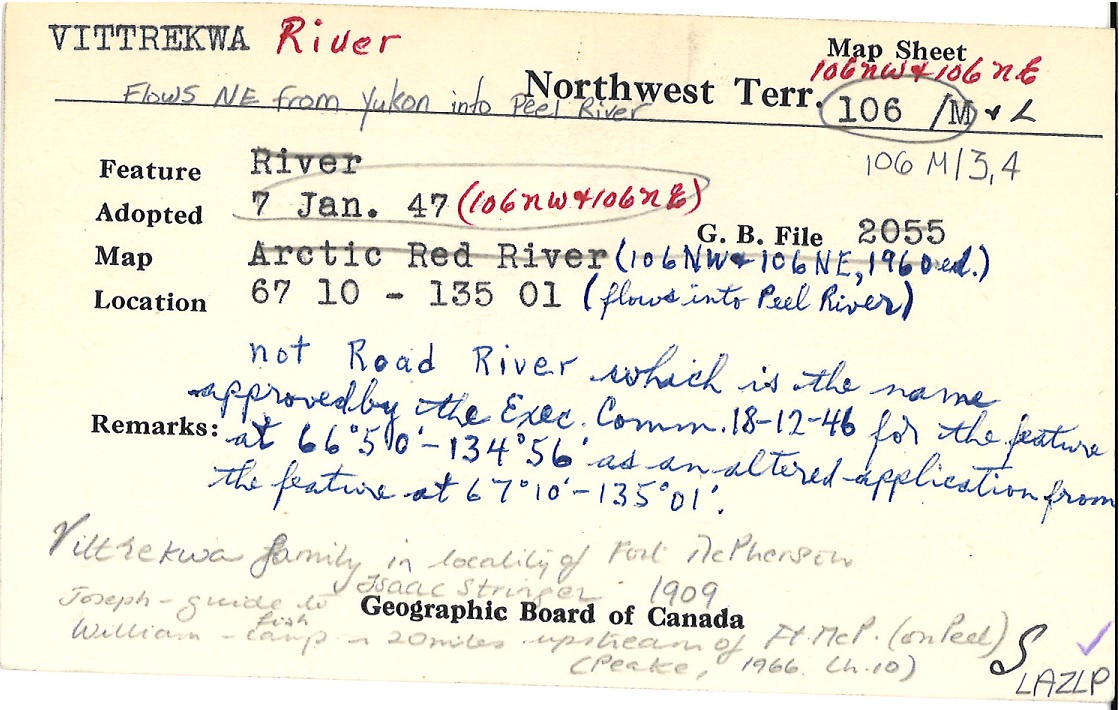 VITTREKWA River
Map Sheet
106NW & 106NE
Flows NE from Yukon into Peel River
Northwest Terr. 106 /M & L
106 M/3,4
Feature River
Adopted 7 Jan. 47 (106NW & 106NE)
G. B. File 2055
Map Arctic Red River (106NW & 106NE, 1960 ed.)
Location 67 10 - 135 01 (flows into Peel River)
not Road River which is the name
approved by the Exec. Comm. 18-12-46 for the feature
Remarks: at 66°50'-134°56' as an altered application from
the feature at 67°10'-135°01'.
Vittrekwa family in locality of Fort McPherson
Joseph - guide to Isaac Stringer 1909
Geographic Board of Canada
William - fish camp ~ 20 miles upstream of Ft. McP. (on Peel)
(Peake, 1966. Ch. 10)
S ✓
LAZLP